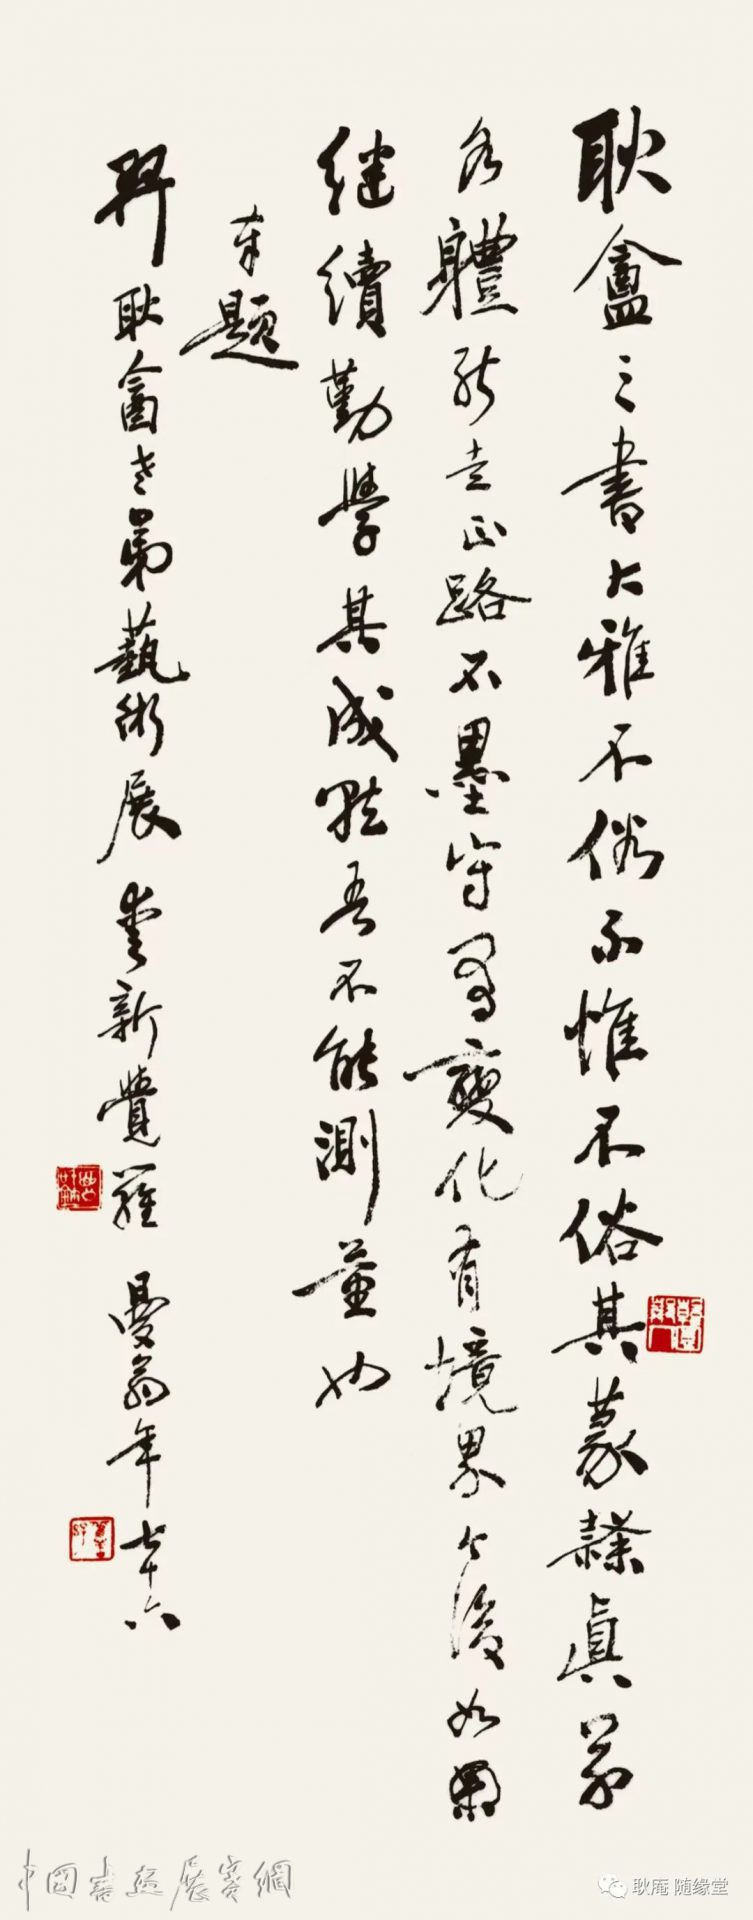 耿盦之書大雅不俗不惟不俗其篆隸真草
各體能走正路不墨守有變化有境界今後如能
继續勤學其成就吾不能測量也
奉題
耿盦老弟藝術展 愛新覺羅 曼翁年七十六
中國書画展賽網
耿庵 随缘堂